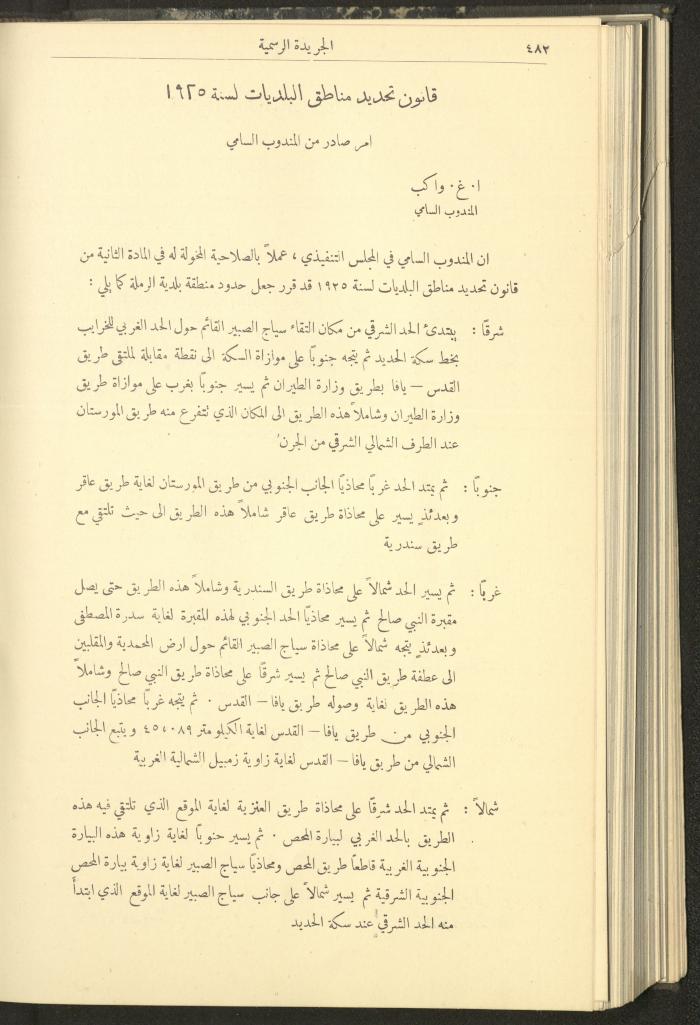 ٤٨٢
الجريدة الرسمية
قانون تحديد مناطق البلديات لسنة ١٩٢٥
امر صادر من المندوب السامي
ا٠ غ٠ واكب
المندوب السامي
ان المندوب السامي في المجلس التنفيذي ، عملاً بالصلاحية المخولة له في المادة الثانية من
قانون تحديد مناطق البلديات لسنة ١٩٢٥ قد قرر جعل حدود منطقة بلدية الرملة كما يلي :
شرقًا : يبتدئ الحد الشرقي من مكان التقاء سياج الصبير القائم حول الحد الغربي للخرايب
بخط سكة الحديد ثم يتجه جنوبًا على موازاة السكة الى نقطة مقابلة لملتقى طريق
القدس – يافا بطريق وزارة الطيران ثم يسير جنوبًا بغرب على موازاة طريق
وزارة الطيران وشاملاً هذه الطريق الى المكان الذي تتفرع منه طريق المورستان
عند الطرف الشمالي الشرقي من الجرن
جنوبًا : ثم يمتد الحد غربًا محاذيًا الجانب الجنوبي من طريق المورستان لغاية طريق عاقر
وبعدئذٍ يسير على محاذاة طريق عاقر شاملاً هذه الطريق الى حيث تلتقي مع
طريق سندرية
غربًا : ثم يسير الحد شمالاً على محاذاة طريق السندرية وشاملاً هذه الطريق حتى يصل
مقبرة النبي صالح ثم يسير محاذيًا الحد الجنوبي لهذه المقبرة لغاية سدرة المصطفى
وبعدئذٍ يتجه شمالاً على محاذاة سياج الصبير القائم حول ارض المحمدية والمقلبين
الى عطفة طريق النبي صالح ثم يسير شرقًا على محاذاة طريق النبي صالح وشاملاً
هذه الطريق لغاية وصوله طريق يافا – القدس ٠ ثم يتجه غربًا محاذيًا الجانب
الجنوبي من طريق يافا – القدس لغاية الكيلومتر ٤٥،٠٨٩ ويتبع الجانب
الشمالي من طريق يافا – القدس لغاية زاوية زمبيل الشمالية الغربية
شمالاً : ثم يمتد الحد شرقًا على محاذاة طريق العنزية لغاية الموقع الذي تلتقي فيه هذه
الطريق بالحد الغربي لبيارة المحص ٠ ثم يسير جنوبًا لغاية زاوية هذه البيارة
الجنوبية الغربية قاطعًا طريق المحص ومحاذيًا سياج الصبير لغاية زاوية بيارة المحص
الجنوبية الشرقية ثم يسير شمالاً على جانب سياج الصبير لغاية الموقع الذي ابتدأ
منه الحد الشرقي عند سكة الحديد